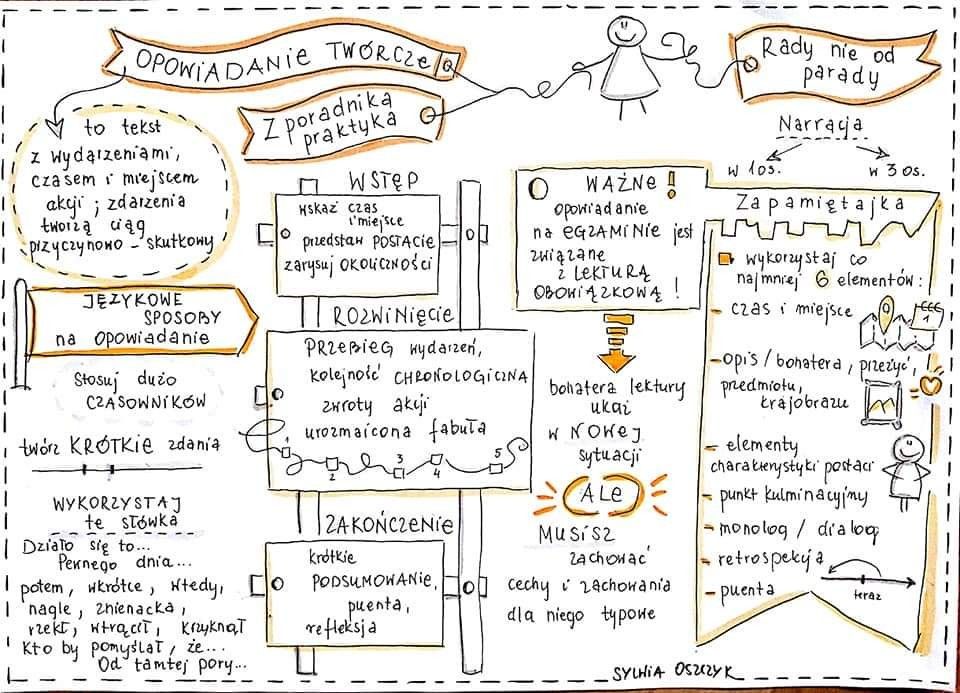 OPOWIADANIE TWÓRCZE
Z poradnika
praktyka
Rady nie od
parady
to tekst
z wydarzeniami,
czasem i miejscem
akcji ; zdarzenia
tworzą ciąg
przyczynowo - skutkowy
JĘZYKOWE
SPOSOBY
na opowiadanie
Stosuj dużo
CZASOWNIKÓW
twórz KRÓTKIE zdania
WYKORZYSTAJ
te słówka
Działo się to...
Pewnego dnia...
potem, wkrótce, wtedy,
nagle, znienacka,
rzekł, wtrącił, krzyknął
Kto by pomyślał, że...
Od tamtej pory...
WSTĘP
wskaż czas
i miejsce
przedstaw POSTACIE
zarysuj OKOLICZNOŚCI
ROZWINIĘCIE
PRZEBIEG wydarzeń,
kolejność CHRONOLOGICZNA
zwroty akcji
urozmaicona fabuła
1 2 3 4 5
ZAKOŃCZENIE
krótkie
PODSUMOWANIE,
puenta,
refleksja
WAŻNE !
opowiadanie
na EGZAMINIE jest
związane
z LEKTURĄ
OBOWIĄZKOWĄ !
bohatera lektury
ukaż
w NOWEJ
sytuacji
ALE
MUSISZ
zachować
cechy i zachowania
dla niego typowe
Narracja
w 1os. w 3 os.
Zapamiętajka
wykorzystaj co
najmniej 6 elementów:
- czas i miejsce
1
- opis / bohatera, przeżyć,
przedmiotu,
krajobrazu
- elementy
charakterystyki postaci
- punkt kulminacyjny
- monolog / dialog
- retrospekcja
teraz
- puenta
SYLWIA OSZCZYK